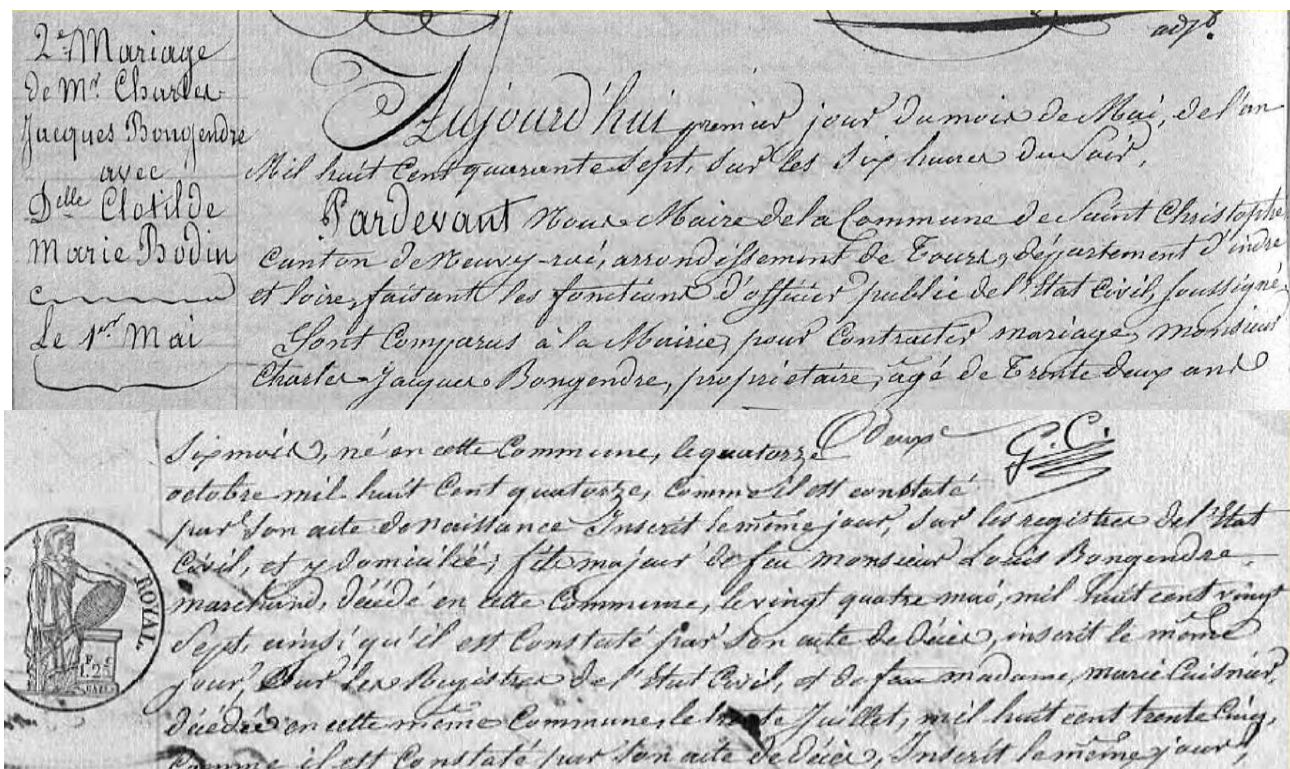 adj.
2e Mariage
de Mr. Charles
Jacques Bongendre
avec
Delle Clotilde
Marie Bodin
Le 1er Mai
Aujourd'hui premier jour du mois de Mai, de l'an
Mil huit Cent quarante sept, sur les six heures du Soir,
Pardevant Nous Maire de la Commune de Saint Christophe
Canton de Neuvy-roi, arrondissement de Tours, département d'indre
et loire, faisant les fonctions d'officier public de l'Etat Civil, soussigné,
Sont Comparus à la Mairie, pour Contracter mariage, monsieur
Charles Jacques Bongendre, propriétaire, agé de Trente deux ans
Six mois, né en cette Commune, le quatorze Deux G.C.
octobre mil huit Cent quatorze, Comme il est constaté
par son acte de naissance Inscrit le même jour, sur les registres de l'Etat
Civil, et y domicilié; fils majeur de feu monsieur Louis Bongendre
marchand, décédé en cette Commune, le vingt quatre mai, mil huit cent vingt
Sept, ainsi qu'il est Constaté par son acte de décès, inscrit le même
jour, Sur les Registres de l'Etat Civil, et de feu madame, marie Cuisnier,
décédée en cette même Commune, le trente Juillet, mil huit cent trente Cinq,
Comme il est Constaté par son acte de décès, Inscrit le même jour,
ROYAL